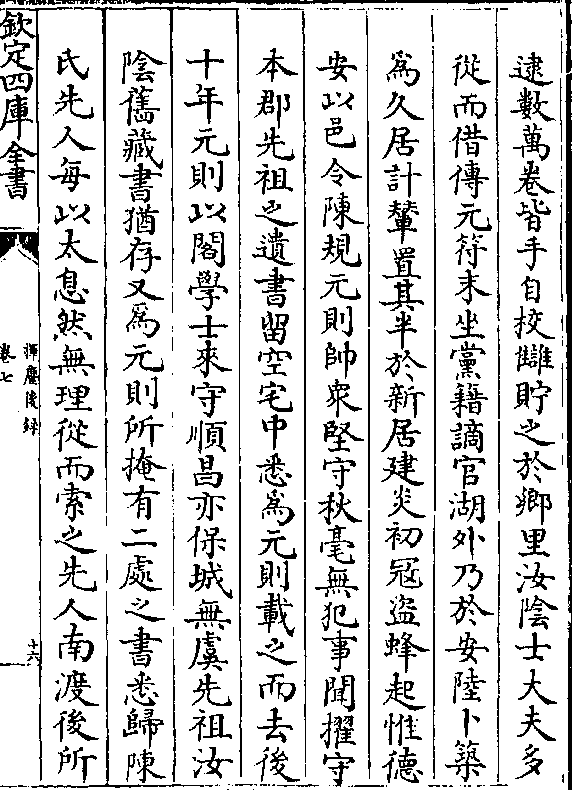 逮數萬卷皆手自校讎貯之於鄉里汝陰士大夫多
從而借傳元符末坐黨籍謫官湖外乃於安陸卜築
爲久居計輦置其半於新居建炎初冦盜蜂起惟德
安以邑令陳規元則帥衆堅守秋毫無犯事聞擢守
本郡先祖之遺書留空宅中悉爲元則載之而去後
十年元則以閣學士來守順昌亦保城無虞先祖汝
陰舊藏書猶存又爲元則所掩有二處之書悉歸陳
氏先人每以太息然無理從而索之先人南渡後所
欽定四庫全書
揮麈後録
卷七
十六